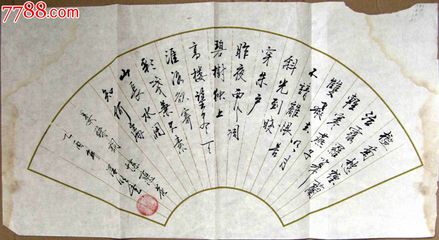 7788.com
檻菊愁煙蘭
泣露羅幕
輕寒燕子
雙飛去明月
不諳離恨苦
斜光到曉
穿朱戶
昨夜西風凋
碧樹獨上
高樓望盡天
涯路欲寄
彩箋兼尺素
山長水闊
知何處
晏殊詞 蝶戀花
乙酉年